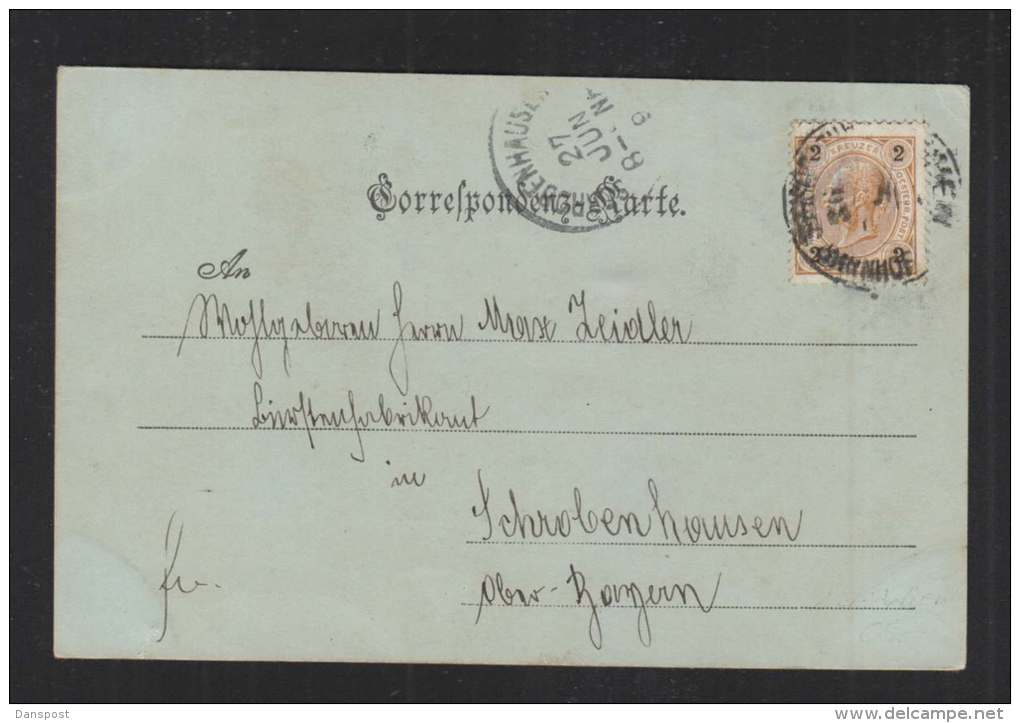 SCHROBENHAUSEN
27
JUN
8-9 N
2 KREUZER 2
OESTERR. POST
2 2
WIEN
Correspondenz-Karte.
An
Wohlgeboren Herrn Max Zeidler
Bürstenfabrikant
in
Schrobenhausen
Ober-Bayern
fr.
Danspost
www.delcampe.net